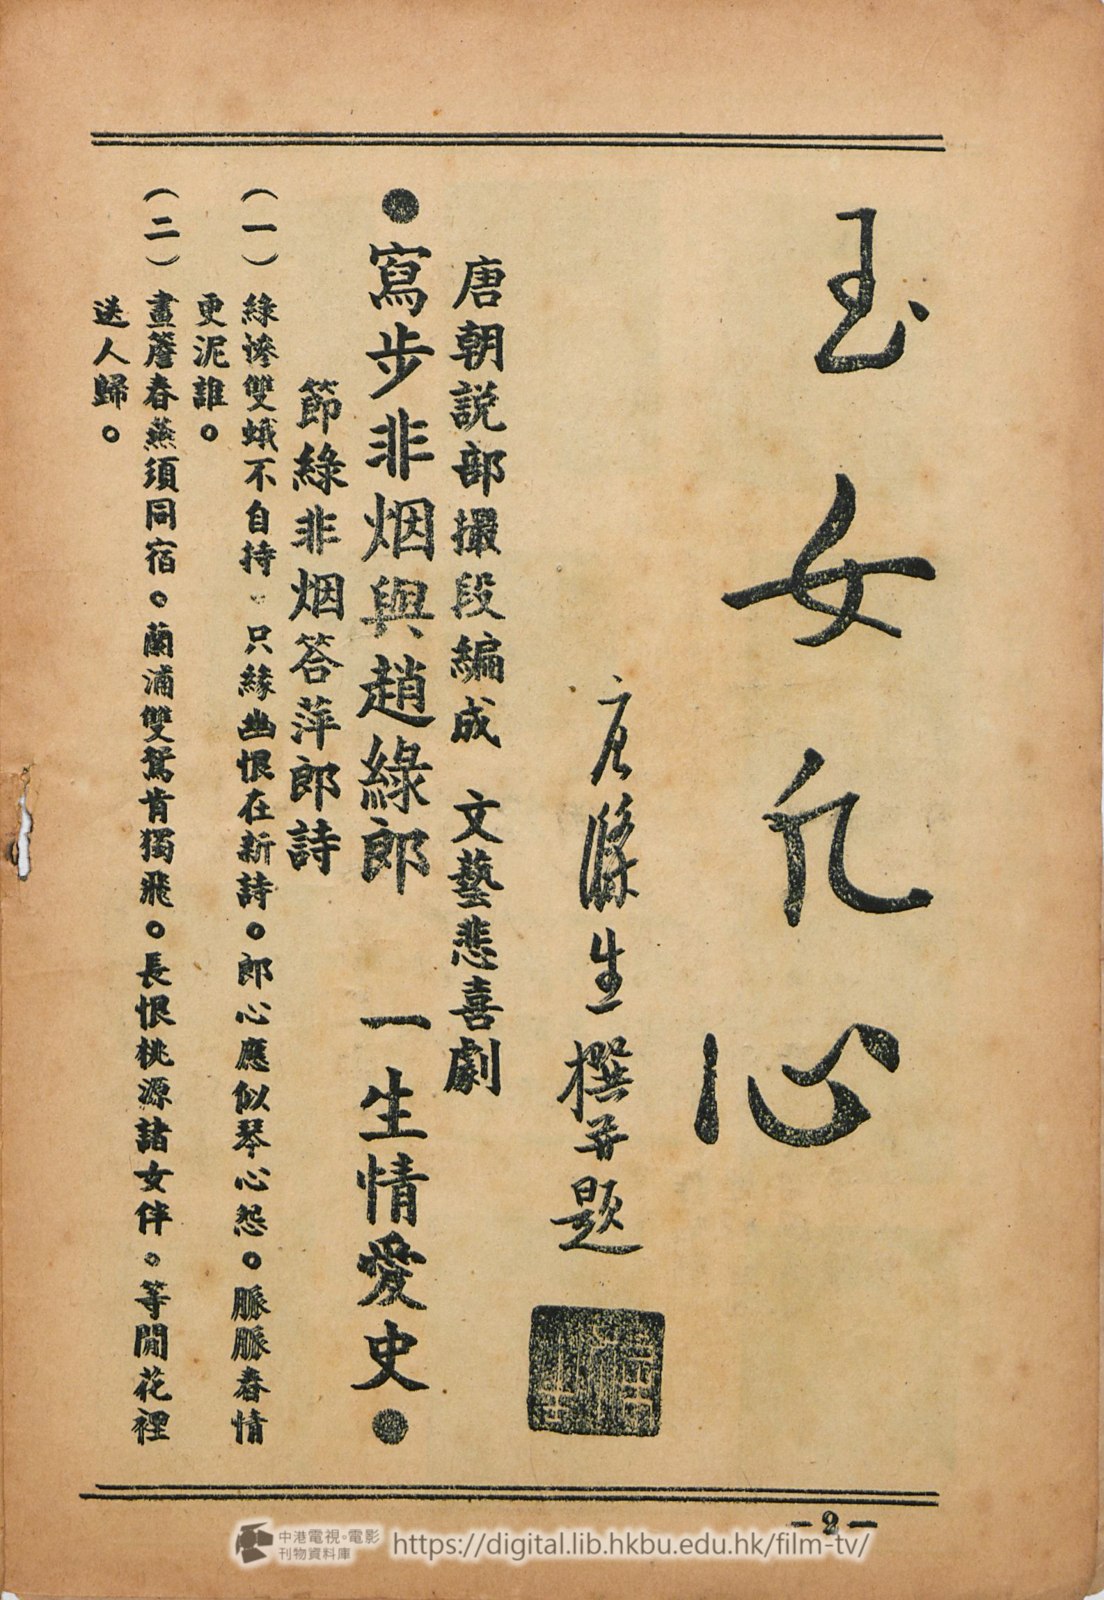 玉女凡心
唐滌生撰并題
唐朝説部撮段編成 文藝悲喜劇
●寫步非烟與趙綠郎 一生情愛史●
節綠非烟答萍郎詩
（一）綠慘雙蛾不自持。只緣幽恨在新詩。郎心應似琴心怨。脈脈春情
更泥誰。
（二）畫簷春燕須同宿。蘭浦雙鴛肯獨飛。長恨桃源諸女伴。等閒花裡
送人歸。
-2-
中港電視電影
刊物資料庫
https://digital.lib.hkbu.edu.hk/film-tv/